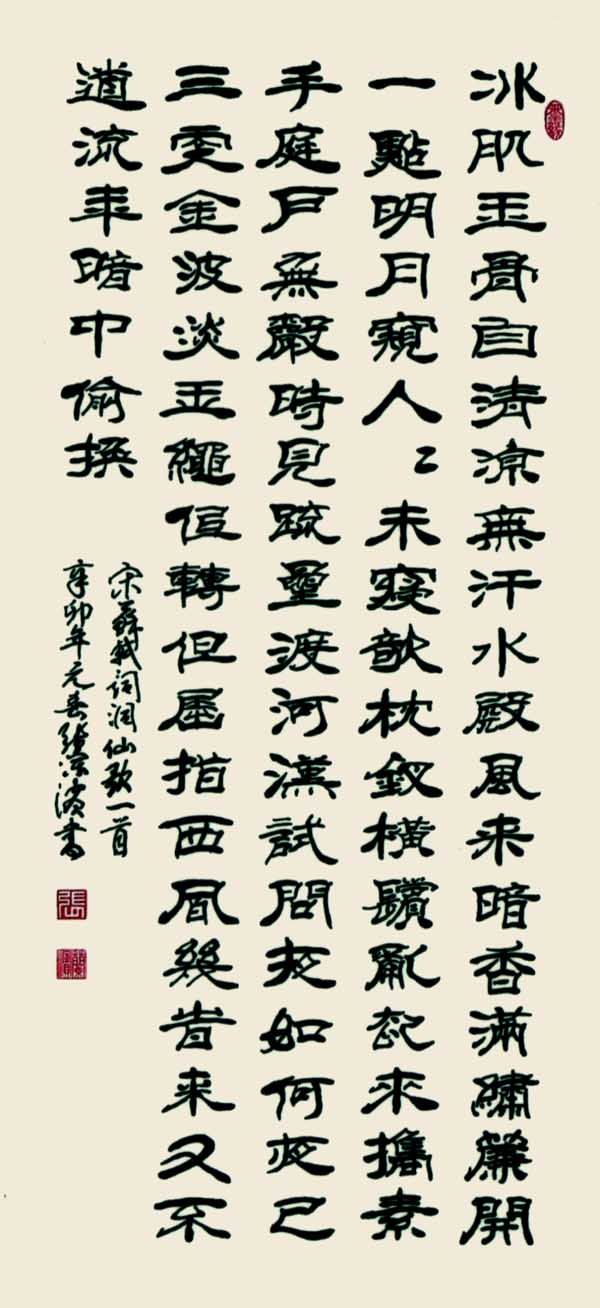 冰肌玉骨自清涼無汗水殿風来暗香滿繡簾開
一點明月窺人〻未寢欹枕釵橫鬢亂起來攜素
手庭戶無聲時見疏星渡河漢試問夜如何夜已
三更金波淡玉繩低轉但屈指西風幾時来又不
道流年暗中偷換
宋蘇軾詞洞仙歌一首
辛卯年元春張
書
張